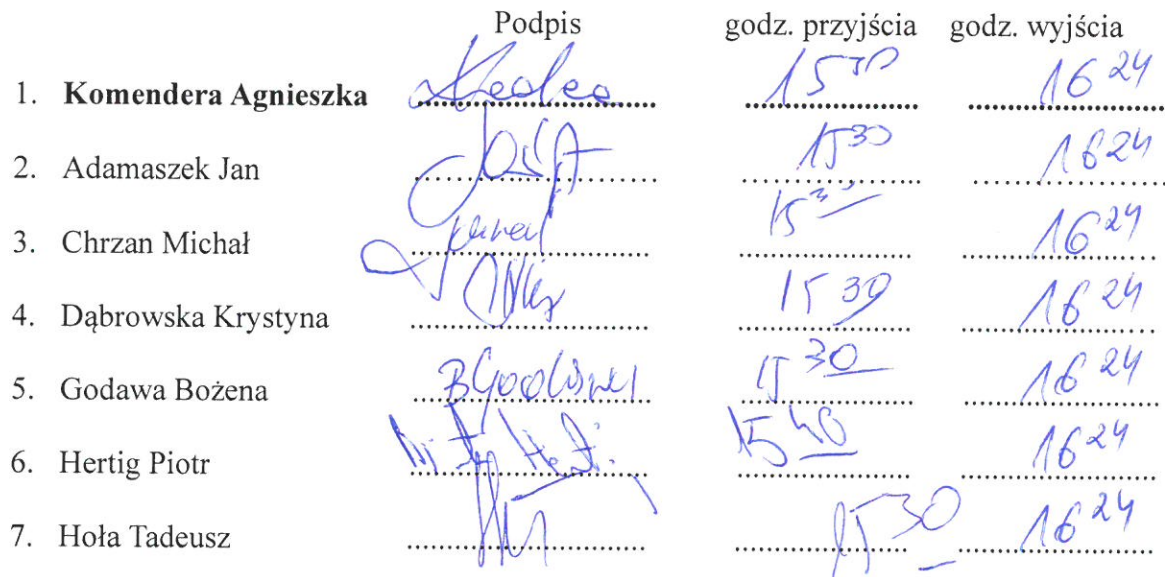 Podpis godz. przyjścia godz. wyjścia
1. Komendera Agnieszka 15 30 16 24
2. Adamaszek Jan 15 30 16 24
3. Chrzan Michał 15 30 16 24
4. Dąbrowska Krystyna 15 30 16 24
5. Godawa Bożena 15 30 16 24
6. Hertig Piotr 15 40 16 24
7. Hoła Tadeusz 15 30 16 24